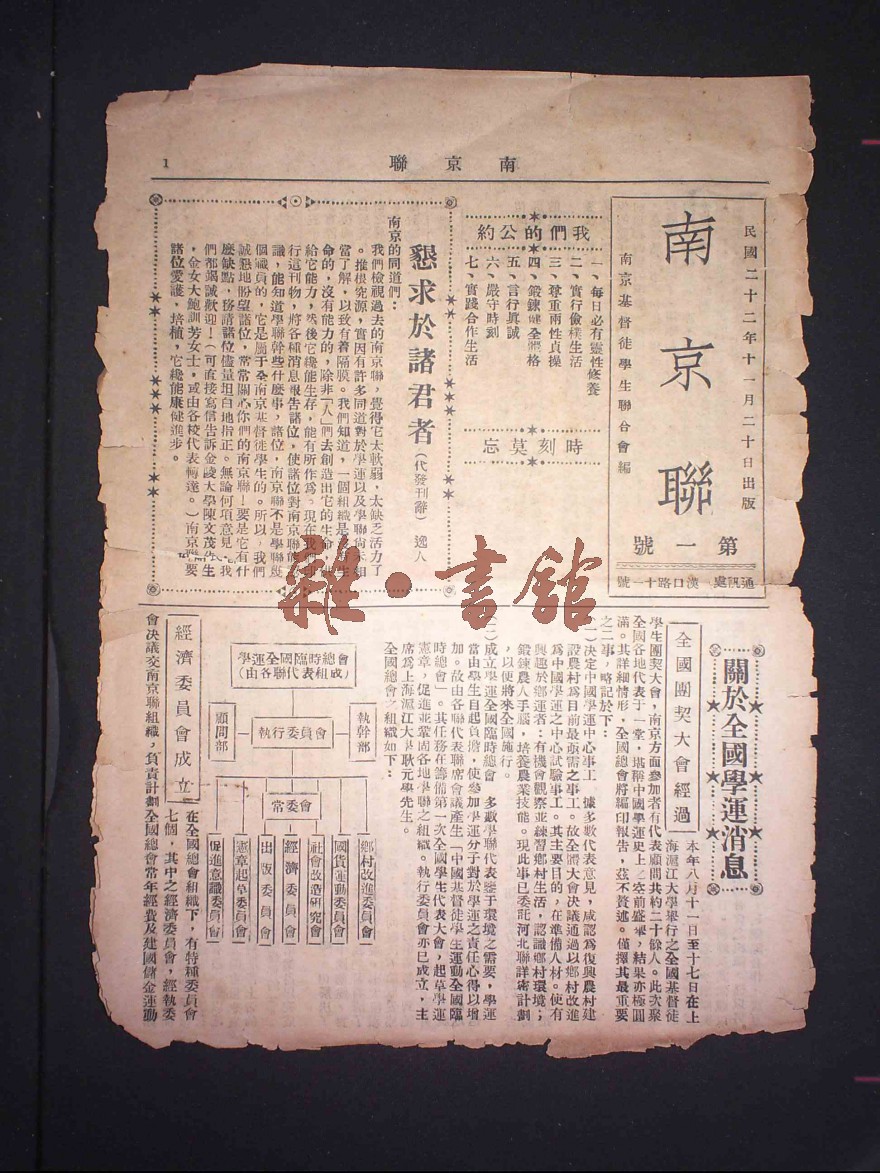 南京聯
1
民國二十二年十一月二十日出版
南京聯
第一號
南京基督徒學生聯合會編
通訊處 漢口路十一號
我們的公約
一、每日必有靈性修養
二、實行儉樸生活
三、尊重兩性貞操
四、鍛鍊健全體格
五、言行真誠
六、嚴守時刻
七、實踐合作生活
時刻莫忘
懇求於諸君者(代發刊辭) 逸人
南京的同道們：
我們檢視過去的南京聯，覺得它太軟弱，太缺乏活力了
。推根究源，實因有許多同道對於學運以及學聯尚未相
當了解，以致有着隔膜。我們知道，一個組織是沒有生
命的，沒有能力的，除非「人」們去創造出它的生命，
給它能力，然後它纔能生存，能有所作爲。現在我們
行這刊物，將各種消息報告諸位，使諸位對南京聯能
識，能知道學聯幹些什麽事，諸位，南京聯不是學聯
個職員的，它是屬于全南京基督徒學生的。所以，我們
誠懇地盼望諸位，常常關心你們的南京聯！要是它有什
麽缺點，務請諸位儘量坦白地指正。無論何項意見，我
們都竭誠歡迎！(可直接寫信告訴金陵大學陳文茂先生
，金女大鮑訓芳女士，或由各校代表轉達。)南京聯要
諸位愛護，培植，它纔能康健進步。
關於全國學運消息
全國團契大會經過
本年八月十一日至十七日在上
海滬江大學舉行之全國基督徒
學生團契大會，南京方面參加者有代表顧問共約二十餘人。此次聚
全國各地代表于一堂，堪稱中國學運史上之空前盛舉，結果亦極圓
滿。其詳細情形，全國總會將編印報告，茲不贅述。僅擇其最重要
之二事，略記於下：
(一)決定中國學運中心事工 據多數代表意見，咸認爲復興農村建
設農村爲目前最亟需之事工。故全體大會決議通過以鄉村改進
爲中國學運之中心試驗事工。其主要目的，在準備人材。使有
興趣於鄉運者：有機會觀察並練習鄉村生活，認識鄉村環境；
鍛鍊農人手腦，培養農業技能。現此事已委託河北聯詳密計劃
，以便將來全國施行。
(二)成立學運全國臨時總會 多數學聯代表鑒于環境之需要，學運
當由學生自起負擔，使參加學運分子對於學運之責任心得以增
加。故由各聯代表聯席會議產生「中國基督徒學生運動全國臨
時總會」。其任務在籌備第一次全國學生代表大會，起草學運
憲章，促進並鞏固各地學聯之組織。執行委員會亦已成立，主
席爲上海滬江大學耿元學先生。
全國總會之組織如下：
學運全國臨時總會
(由各聯代表組成)
執幹部
執行委員會
顧問部
常委會
鄉村改進委員會
國貨運動委員會
社會改造研究會
經濟委員會
出版委員會
憲章起草委員會
促進意識委員會
經濟委員會成立
在全國總會組織下，有特種委員會
七個，其中之經濟委員會，經執委
會決議交南京聯組織，負責計劃全國總會常年經費及建國儲金運動
雜·書館